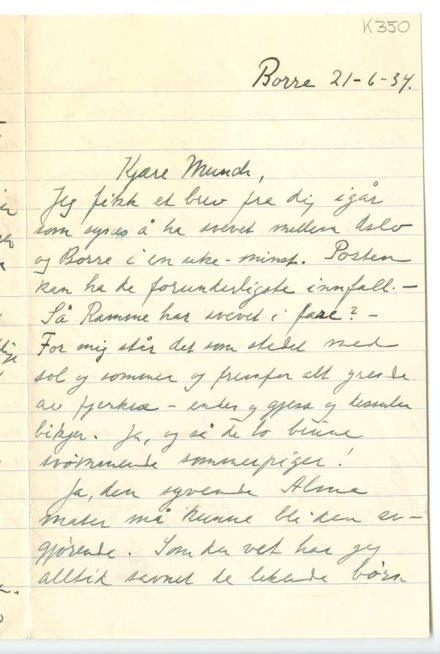 K350
Borre 21-6-34.
Kjære Munch,
Jeg fikk et brev fra dig igår
som synes å ha svevet mellem Oslo
og Borre i en uke - minst. Posten
kan ha de forunderligste innfall. -
Så Ramme har svevet i fare? -
For mig står det som stedet med
sol og sommer og fremfor alt
av fjerkræ - ender og gjess og
bikjer. Ja, og så de to brune
svømmende sommerpiger!
Ja, den syvende Alma
mater må kunne bli den av-
gjørende. Som du vet har jeg
alltid savnet de lekende børn